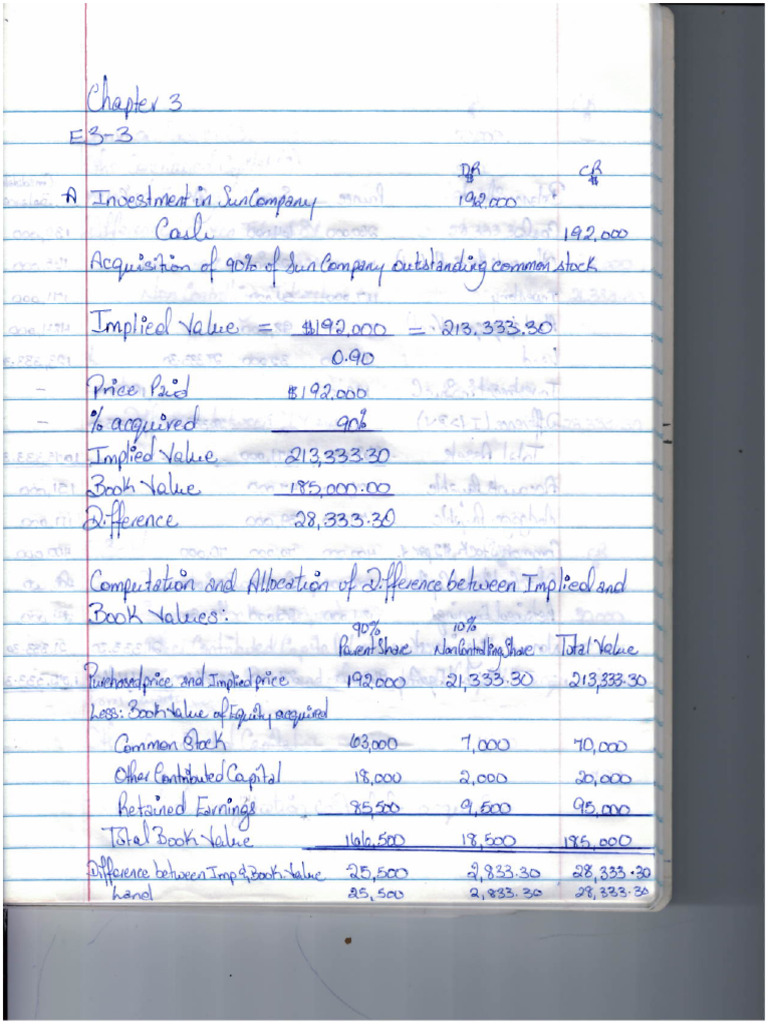 Chapter 3
E3-3
DR CR
$ $
A Investment in Sun Company 192,000
Cash 192,000
Acquisition of 90% of Sun Company outstanding common stock
Implied Value = $192,000 = 213,333.30
0.90
Price Paid $192,000
% acquired 90%
Implied Value 213,333.30
Book Value 185,000.00
Difference 28,333.30
Computation and Allocation of Difference between Implied and
Book Values:
90% 10%
Parent Share NonControlling Share Total Value
Purchased price and Implied price 192,000 21,333.30 213,333.30
Less: Book Value of Equity acquired
Common Stock 63,000 7,000 70,000
Other Contributed Capital 18,000 2,000 20,000
Retained Earnings 85,500 9,500 95,000
Total Book Value 166,500 18,500 185,000
Difference between Imp & Book Value 25,500 2,833.30 28,333.30
Land 25,500 2,833.30 28,333.30